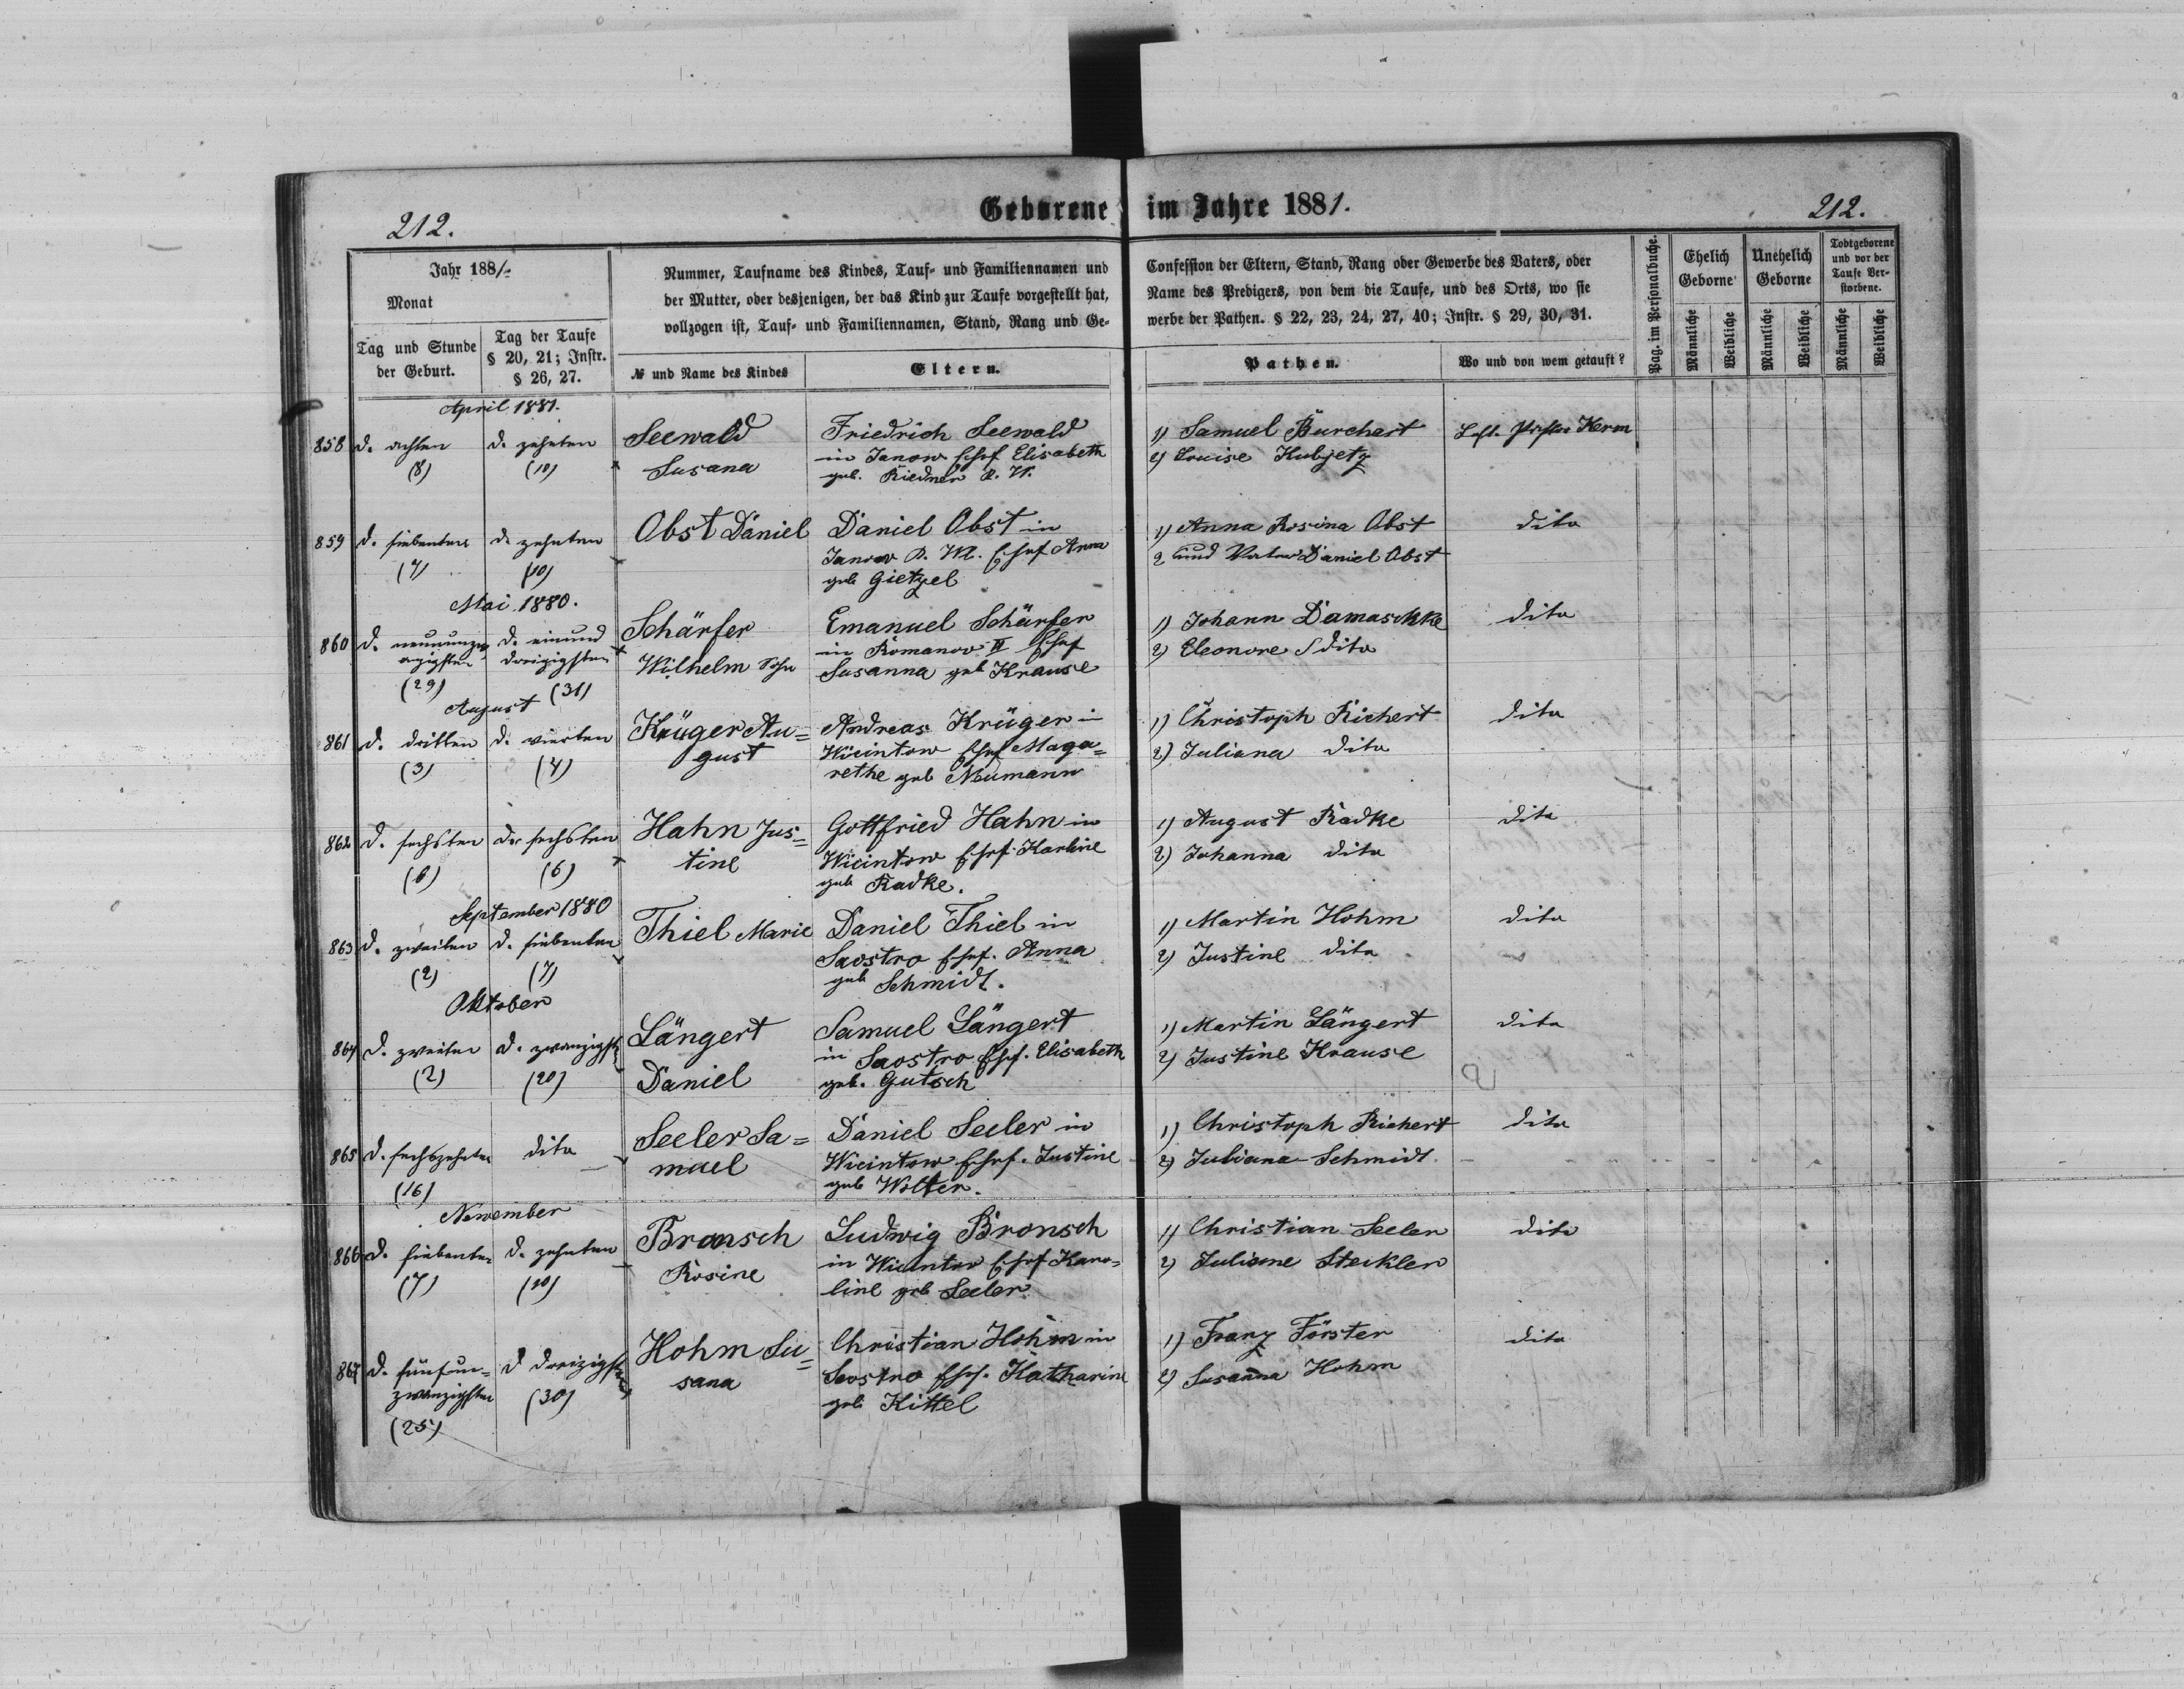 212.
Geborene im Jahre 1881.
212.
Jahr 1881.
Monat
Tag und Stunde der Geburt.
Tag der Taufe § 20, 21; Instr. § 26, 27.
Nummer, Taufname des Kindes, Tauf- und Familiennamen und
der Mutter, oder desjenigen, der das Kind zur Taufe vorgestellt hat,
vollzogen ist, Tauf- und Familiennamen, Stand, Rang und Ge-
№ und Name des Kindes
Eltern.
Confession der Eltern, Stand, Rang oder Gewerbe des Vaters, oder
Name des Predigers, von dem die Taufe, und des Orts, wo sie
werbe der Pathen. § 22, 23, 24, 27, 40; Instr. § 29, 30, 31.
Pathen.
Wo und von wem getauft?
Pag. im Personalbuche.
Ehelich Geborne
Unehelich Geborne
Todtgeborene und vor der Taufe Verstorbene.
Männliche
Weibliche
Männliche
Weibliche
Männliche
Weibliche
April 1881.
858 d. achten (8)
d. zehnten (10)
Seewald
Susana
Friedrich Seewald
in Janow Ehef Elisabeth
geb. Riedner
1) Samuel Burchart
2) Louise Kubjetz
Kerm
859 d. siebenten (7)
d. zehnten (10)
Obst Daniel
Daniel Obst in
Janow Ehef Anna
geb Gietzel
1) Anna Rosina Obst
2 und Vater Daniel Obst
dito
Mai 1880.
860 d. neunund-
zwanzigsten (29)
d. einund
dreizigsten (31)
Schärfer
Wilhelm Sohn
Emanuel Schärfer
in Romanow II Ehef
Susanna geb Krause
1) Johann Damaschke
2) Eleonore dito
dito
August
861 d. dritten (3)
d. vierten (4)
Krüger Au=
gust
Andreas Krüger in
Wicintow Ehef Maga=
rethe geb Neumann
1) Christoph Richert
2) Juliana dito
dito
862 d. sechsten (6)
d. sechsten (6)
Hahn Jus=
tine
Gottfried Hahn in
Wicintow Ehef. Karline
geb Radke.
1) August Radke
2) Johanna dito
dito
September 1880
863 d. zweiten (2)
d. siebenten (7)
Thiel Marie
Daniel Thiel in
Saostro Ehef. Anna
geb Schmidt.
1) Martin Hohm
2) Justine dito
dito
Oktober
864 d. zweiten (2)
d. zwanzigst (20)
Längert
Daniel
Samuel Längert
in Saostro Ehef. Elisabeth
geb. Gutsch
1) Martin Längert
2) Justine Krause
dito
865 d. sechszehnten (16)
dito
Seeler Sa=
muel
Daniel Seeler in
Wicintow Ehef. Justine
geb Wolter.
1) Christoph Richert
2) Juliana Schmidt
dito
November
866 d. siebenten (7)
d. zehnten (10)
Bronsch
Rosine
Ludwig Bronsch
in Wicintow Ehef Karo=
line geb Seeler
1) Christian Seeler
2) Juliane Steckler
dito
867 d. fünfun=
zwanzigsten (25)
d dreizigsten (30)
Hohm Su=
sana
Christian Hohm in
Saostro Ehef. Katharine
geb Kittel
1) Franz Förster
2) Susanna Hohm
dito